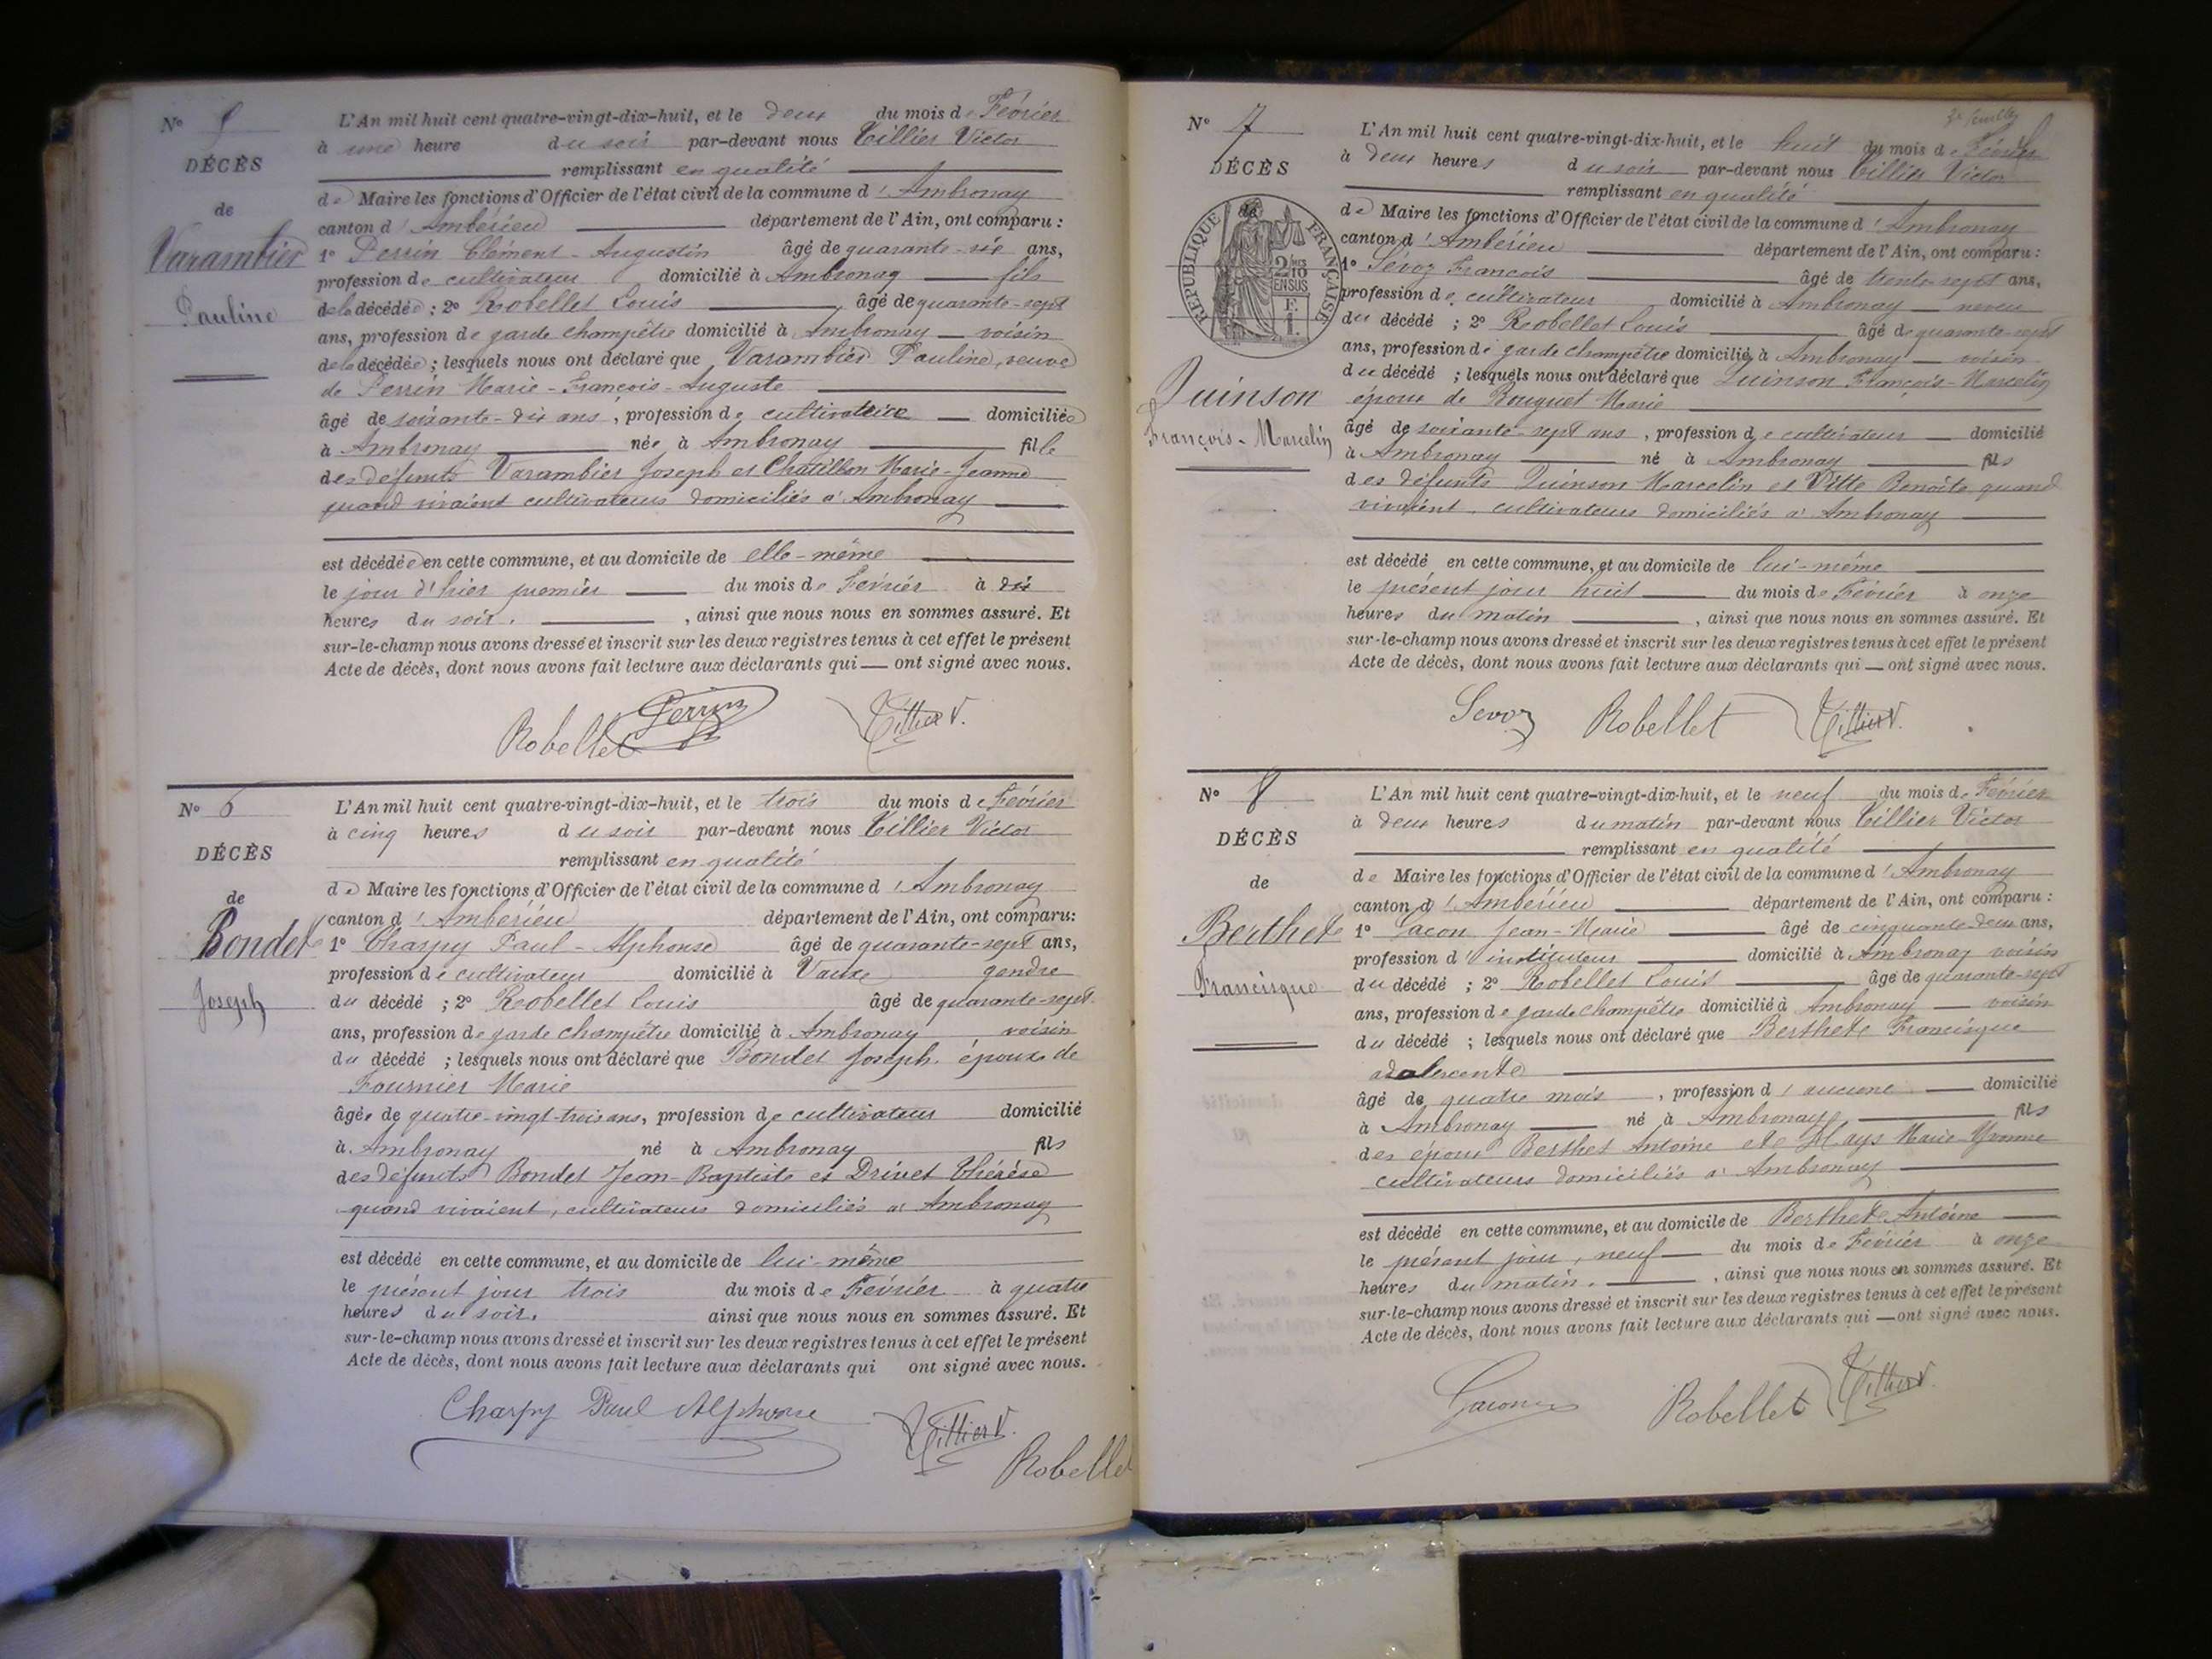 N° 5
DÉCÈS
de
Varambier
Pauline
L'An mil huit cent quatre-vingt-dix-huit, et le deux du mois de Février
à une heure du soir par-devant nous Tillier Victor
remplissant en qualité
de Maire les fonctions d'Officier de l'état civil de la commune d'Ambronay
canton d'Ambérieu département de l'Ain, ont comparu :
1° Perrin Clément-Augustin âgé de quarante-six ans,
profession de cultivateur domicilié à Ambronay fils
de la décédée ; 2° Robellet Louis âgé de quarante-sept
ans, profession de garde champêtre domicilié à Ambronay voisin
de la décédée ; lesquels nous ont déclaré que Varambier Pauline, veuve
de Perrin Marie-François-Auguste
âgé de soixante-dix ans, profession de cultivatrice domiciliée
à Ambronay née à Ambronay fille
des défunts Varambier Joseph et Chatillon Marie-Jeanne
quand vivaient cultivateurs domiciliés à Ambronay
est décédée en cette commune, et au domicile de elle-même
le jour d'hier premier du mois de Février à dix
heures du soir. , ainsi que nous nous en sommes assuré. Et
sur-le-champ nous avons dressé et inscrit sur les deux registres tenus à cet effet le présent
Acte de décès, dont nous avons fait lecture aux déclarants qui ont signé avec nous.
Robellet Perrin Tillier V.
N° 6
DÉCÈS
de
Bondet
Joseph
L'An mil huit cent quatre-vingt-dix-huit, et le trois du mois de Février
à cinq heures du soir par-devant nous Tillier Victor
remplissant en qualité
de Maire les fonctions d'Officier de l'état civil de la commune d'Ambronay
canton d'Ambérieu département de l'Ain, ont comparu:
1° Charpy Paul-Alphonse âgé de quarante-sept ans,
profession de cultivateur domicilié à Vaux gendre
du décédé ; 2° Robellet Louis âgé de quarante-sept
ans, profession de garde champêtre domicilié à Ambronay voisin
du décédé ; lesquels nous ont déclaré que Bondet Joseph, époux de
Fournier Marie
âgée de quatre-vingt-trois ans, profession de cultivateur domicilié
à Ambronay né à Ambronay fils
des défunts Bondet Jean-Baptiste et Drivet Thérèse
quand vivaient, cultivateurs domiciliés à Ambronay
est décédé en cette commune, et au domicile de lui-même
le présent jour trois du mois de Février à quatre
heures du soir. ainsi que nous nous en sommes assuré. Et
sur-le-champ nous avons dressé et inscrit sur les deux registres tenus à cet effet le présent
Acte de décès, dont nous avons fait lecture aux déclarants qui ont signé avec nous.
Charpy Paul Alphonse Tillier V.
Robellet
N° 7
DÉCÈS
de
RÉPUBLIQUE FRANÇAISE
2/10 EN SUS
F. 1.
Quinson
François-Marcelin
L'An mil huit cent quatre-vingt-dix-huit, et le huit du mois de Février
à deux heures du soir par-devant nous Tillier Victor
remplissant en qualité
de Maire les fonctions d'Officier de l'état civil de la commune d'Ambronay
canton d'Ambérieu département de l'Ain, ont comparu:
1° Sévoz François âgé de trente-sept ans,
profession de cultivateur domicilié à Ambronay neveu
du décédé ; 2° Robellet Louis âgé de quarante-sept
ans, profession de garde champêtre domicilié à Ambronay voisin
du décédé ; lesquels nous ont déclaré que Quinson François-Marcelin
époux de Rouguet Marie
âgé de soixante-sept ans, profession de cultivateur domicilié
à Ambronay né à Ambronay fils
des défunts Quinson Marcelin et Vitte Benoîte quand
vivaient, cultivateurs domiciliés à Ambronay
est décédé en cette commune, et au domicile de lui-même
le présent jour huit du mois de Février à onze
heures du matin , ainsi que nous nous en sommes assuré. Et
sur-le-champ nous avons dressé et inscrit sur les deux registres tenus à cet effet le présent
Acte de décès, dont nous avons fait lecture aux déclarants qui ont signé avec nous.
Sevoz Robellet Tillier V.
N° 8
DÉCÈS
de
Berthet
Francisque
L'An mil huit cent quatre-vingt-dix-huit, et le neuf du mois de Février
à deux heures du matin par-devant nous Tillier Victor
remplissant en qualité
de Maire les fonctions d'Officier de l'état civil de la commune d'Ambronay
canton d'Ambérieu département de l'Ain, ont comparu :
1° Gacon Jean-Marie âgé de cinquante-deux ans,
profession d'instituteur domicilié à Ambronay voisin
du décédé ; 2° Robellet Louis âgé de quarante-sept
ans, profession de garde champêtre domicilié à Ambronay voisin
du décédé ; lesquels nous ont déclaré que Berthet Francisque
âgé de quatre mois, profession d'aucune domicilié
à Ambronay né à Ambronay fils
des époux Berthet Antoine et Mays Marie-Yvonne
cultivateurs domiciliés à Ambronay
est décédé en cette commune, et au domicile de Berthet Antoine
le présent jour, neuf du mois de Février à onze
heures du matin. , ainsi que nous nous en sommes assuré. Et
sur-le-champ nous avons dressé et inscrit sur les deux registres tenus à cet effet le présent
Acte de décès, dont nous avons fait lecture aux déclarants qui ont signé avec nous.
Gacon Robellet Tillier V.